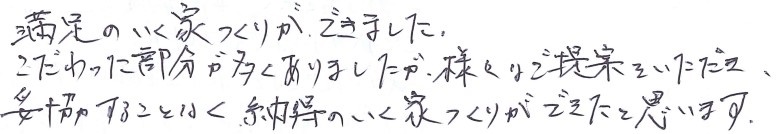 満足のいく家づくりができました。
こだわった部分が多くありましたが、様々なご提案をいただき、
妥協することなく納得のいく家づくりができたと思います。